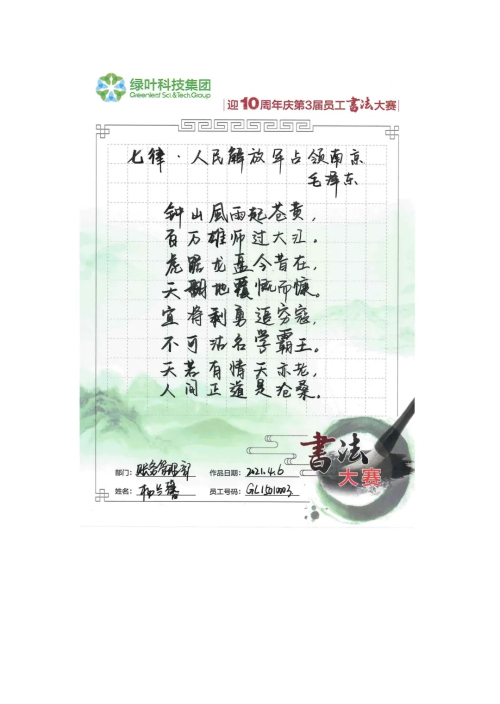 绿叶科技集团
Greenleaf Sci.&Tech.Group
迎10周年庆第3届员工书法大赛
七律·人民解放军占领南京
毛泽东
钟山风雨起苍黄，
百万雄师过大江。
虎踞龙盘今昔在，
天翻地覆慨而慷。
宜将剩勇追穷寇，
不可沽名学霸王。
天若有情天亦老，
人间正道是沧桑。
书法
大赛
部门： 作品日期：2021.4.6
姓名： 员工号码：GL1501003